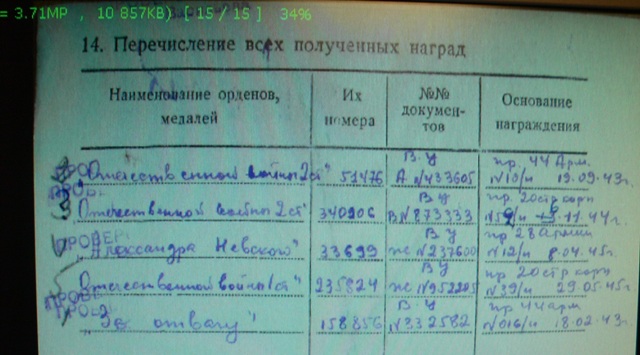 = 3.71MP , 10 857KB) [ 15 / 15 ] 34%
14. Перечисление всех полученных наград
Наименование орденов, медалей
Их номера
№№ документов
Основание награждения
Отечественной войны 2 ст" 51476 В.У А N433605 пр. 44 Арм. N10/н 19.09.43г.
Отечественной войны 2 ст" 340906 В.У В N873333 пр. 20 стр корп 11.44г.
ПРОВЕР. "Александра Невского" 33699 В У ж N237600 пр 28 Армии N12/н 8.04.45г.
Отечественной войны 1 ст" 235824 В У ж N952205 пр 20 стр корп N39/н 29.05.45г
"За отвагу" 158856 В.У N332582 пр 44 арм N016/н 18.02.43г.